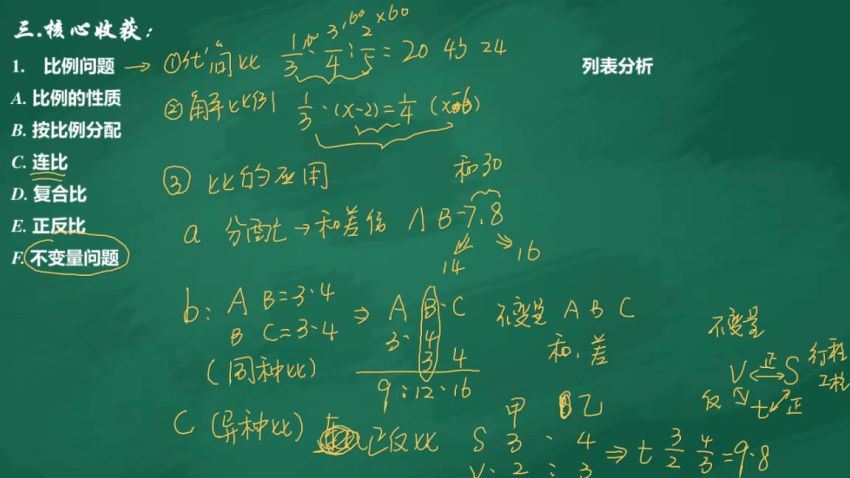 三.核心收获：
1. 比例问题 → ①化简比 1/3 : 3/4 : 2/5 = 20 45 24
×60 ×60
列表分析
A. 比例的性质
②解比例 1/3 · (x-2) = 1/4 (x-6)
B. 按比例分配
C. 连比
③ 比的应用
和30
D. 复合比
E. 正反比
a 分配比 → 和差倍 A B=7:8
14 16
F. 不变量问题
b: A B=3:4 ⇒ A B C
B C=3:4
3 4
3 4
(同种比)
9:12:16
不变量 A B C
和、差
不变量
V 正 S 行程
工程
反 t 正
C (异种比) 正反比
甲 乙
S 3 : 4 ⇒ t 3/2 4/3 = 9:8
V: 2 : 3